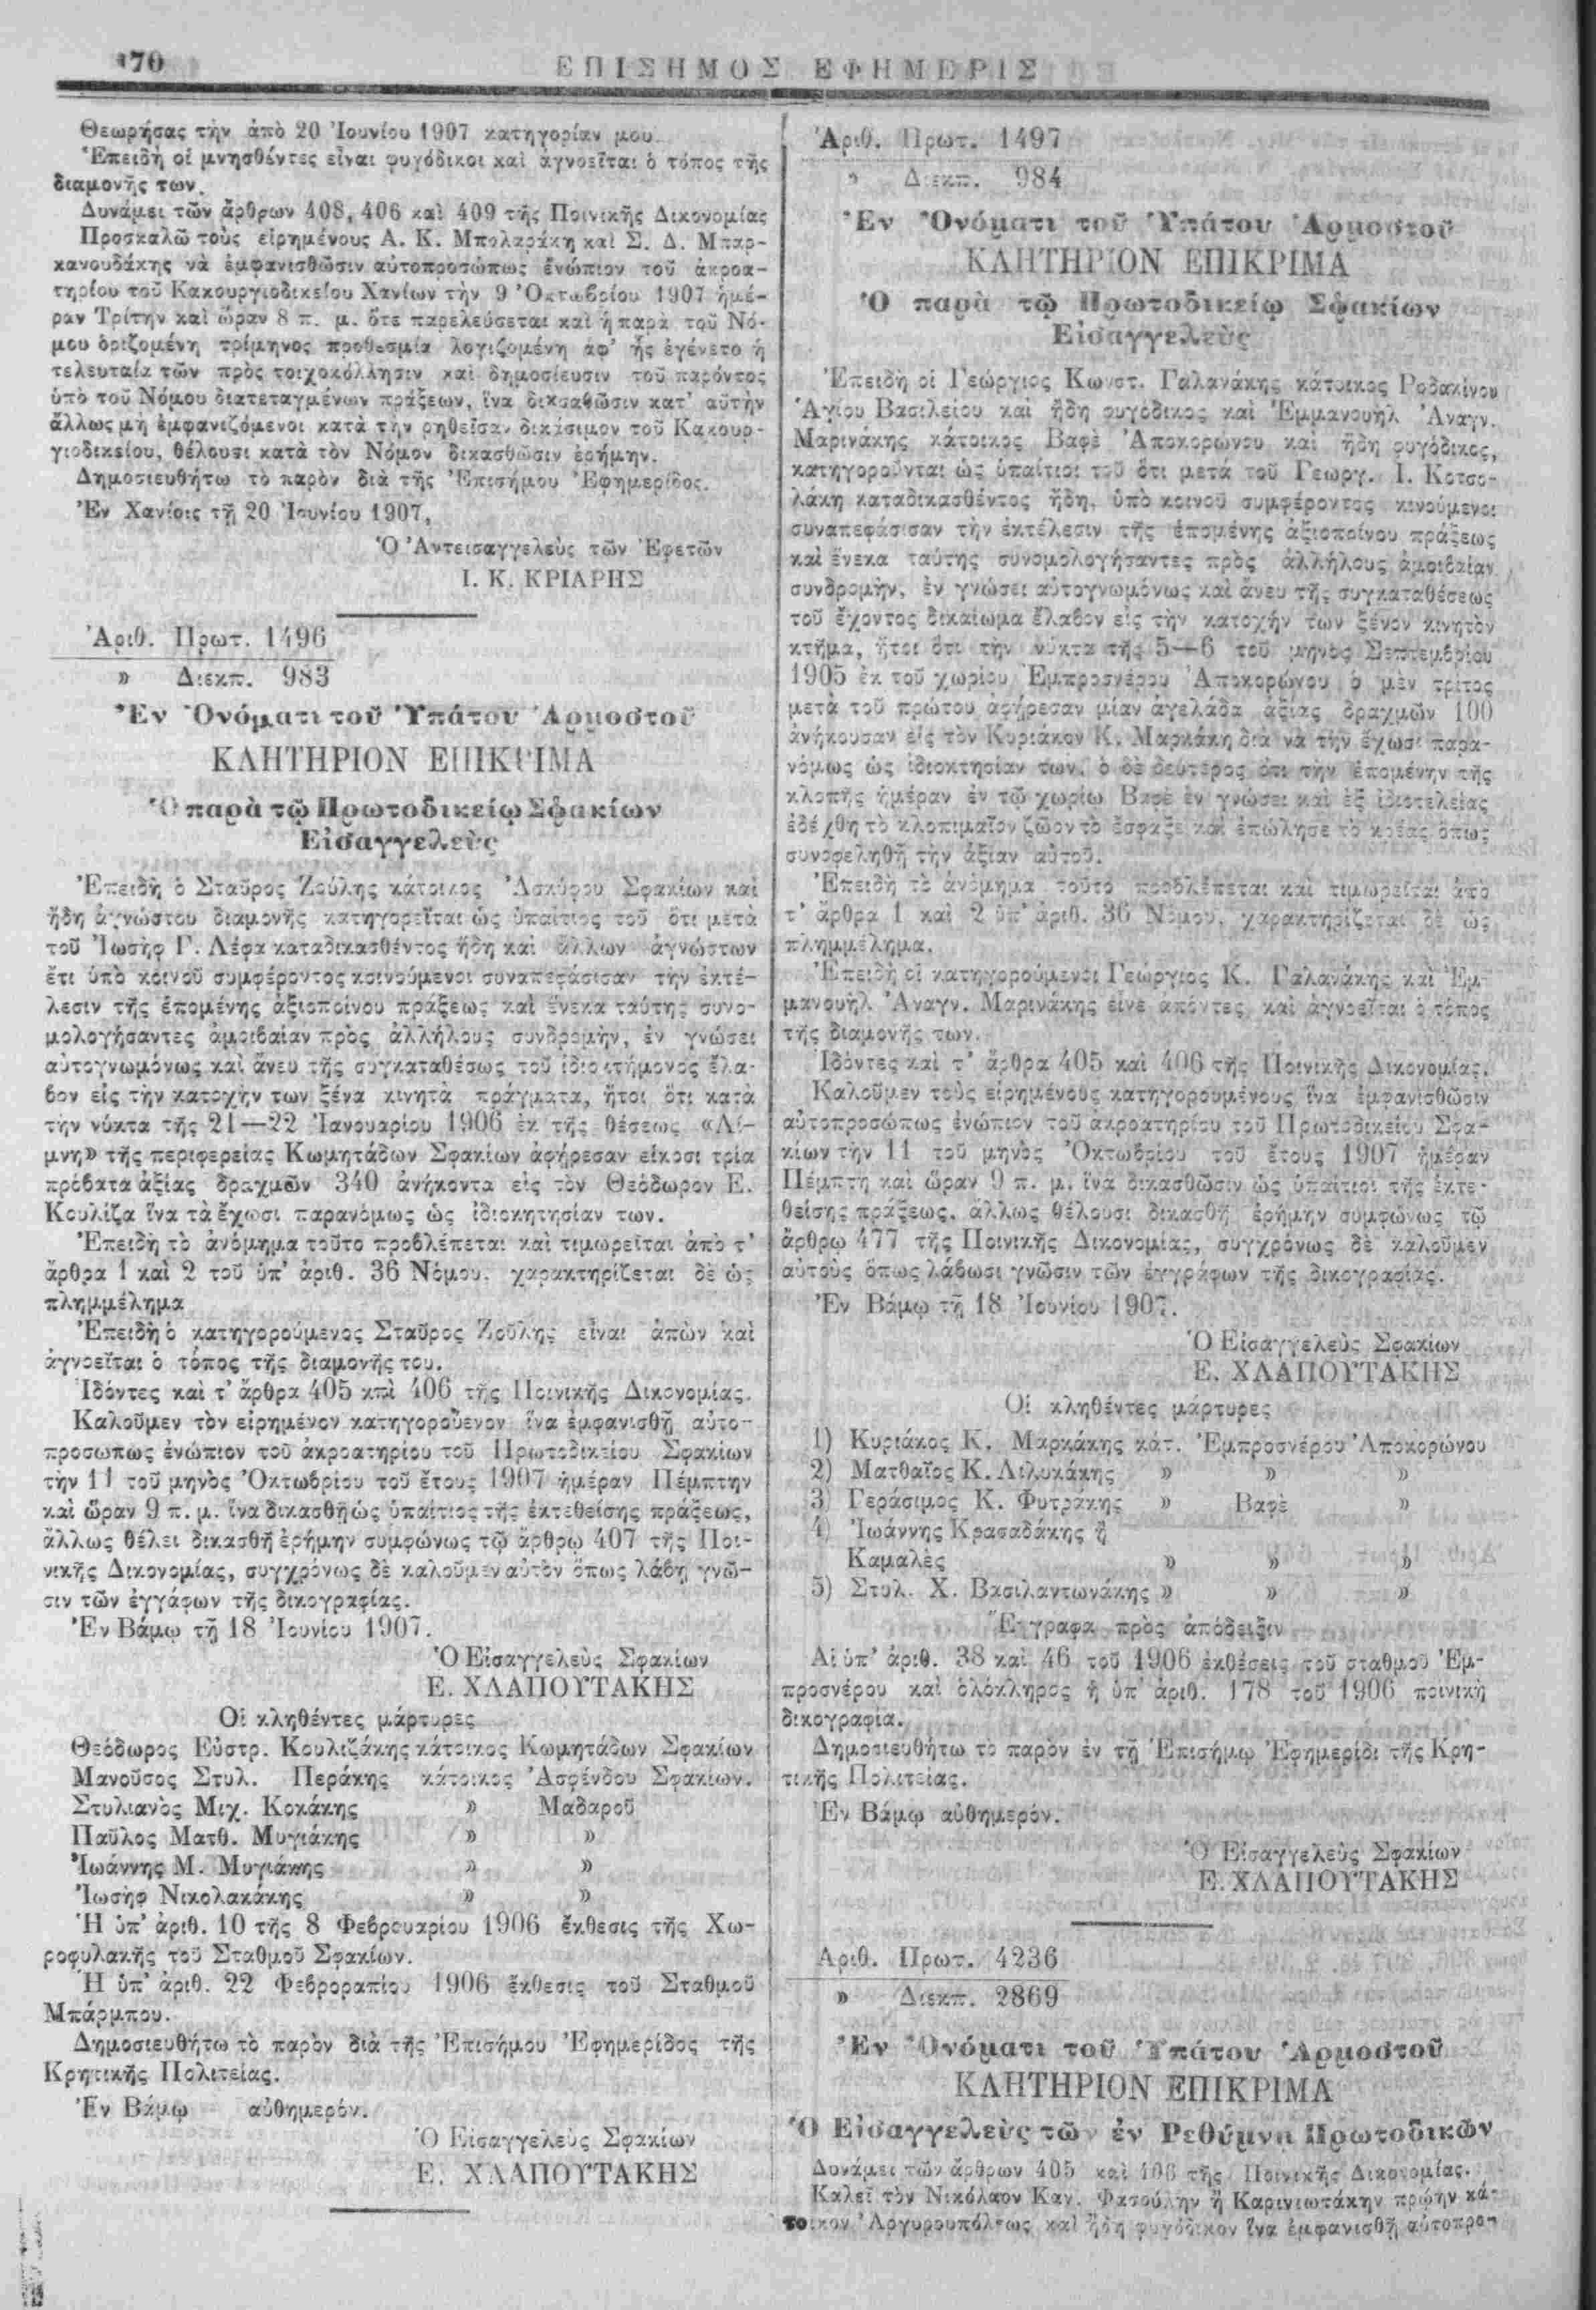 170
ΕΠΙΣΗΜΟΣ ΕΦΗΜΕΡΙΣ
Θεωρήσας τὴν ἀπὸ 20 Ἰουνίου 1907 κατηγορίαν μου.
Ἐπειδὴ οἱ μνησθέντες εἶναι φυγόδικοι καὶ ἀγνοεῖται ὁ τόπος τῆς
διαμονῆς των.
Δυνάμει τῶν ἄρθρων 408, 406 καὶ 409 τῆς Ποινικῆς Δικονομίας
Προσκαλῶ τοὺς εἰρημένους Α. Κ. Μπολαράκη καὶ Σ. Δ. Μπαρ-
κανουδάκης νὰ ἐμφανισθῶσιν αὐτοπροσώπως ἐνώπιον τοῦ ἀκροα-
τηρίου τοῦ Κακουργιοδικείου Χανίων τὴν 9 Ὀκτωβρίου 1907 ἡμέ-
ραν Τρίτην καὶ ὥραν 8 π. μ. ὅτε παρελεύσεται καὶ ἡ παρὰ τοῦ Νό-
μου ὁριζομένη τρίμηνος προθεσμία λογιζομένη ἀφ' ἧς ἐγένετο ἡ
τελευταία τῶν πρὸς τοιχοκόλλησιν καὶ δημοσίευσιν τοῦ παρόντος
ὑπὸ τοῦ Νόμου διατεταγμένων πράξεων, ἵνα δικσαθῶσιν κατ' αὐτὴν
ἄλλως μὴ ἐμφανιζόμενοι κατὰ τὴν ρηθεῖσαν δικάσιμον τοῦ Κακουρ-
γιοδικείου, θέλουσι κατὰ τὸν Νόμον δικασθῶσιν ἐρήμην.
Δημοσιευθήτω τὸ παρὸν διὰ τῆς Ἐπισήμου Ἐφημερίδος.
Ἐν Χανίοις τῇ 20 Ἰουνίου 1907,
Ὁ Ἀντεισαγγελεὺς τῶν Ἐφετῶν
Ι. Κ. ΚΡΙΑΡΗΣ
Ἀριθ. Πρωτ. 1496
» Διεκπ. 983
Ἐν Ὀνόματι τοῦ Ὑπάτου Ἁρμοστοῦ
ΚΛΗΤΗΡΙΟΝ ΕΠΙΚΡΙΜΑ
Ὁ παρὰ τῷ Πρωτοδικείῳ Σφακίων
Εἰσαγγελεὺς
Ἐπειδὴ ὁ Σταῦρος Ζούλης κάτοικος Ἀσκύφου Σφακίων καὶ
ἤδη ἀγνώστου διαμονῆς κατηγορεῖται ὡς ὑπαίτιος τοῦ ὅτι μετὰ
τοῦ Ἰωσὴφ Γ. Λέφα καταδικασθέντος ἤδη καὶ ἄλλων ἀγνώστων
ἔτι ὑπὸ κοινοῦ συμφέροντος κοινούμενοι συναπεφάσισαν τὴν ἐκτέ-
λεσιν τῆς ἑπομένης ἀξιοποίνου πράξεως καὶ ἕνεκα ταύτης συνο-
μολογήσαντες ἀμοιβαίαν πρὸς ἀλλήλους συνδρομὴν, ἐν γνώσει
αὐτογνωμόνως καὶ ἄνευ τῆς συγκαταθέσως τοῦ ἰδιοκτήμονος ἔλα-
βον εἰς τὴν κατοχὴν των ξένα κινητὰ πράγματα, ἤτοι ὅτι κατὰ
τὴν νύκτα τῆς 21—22 Ἰανουαρίου 1906 ἐκ τῆς θέσεως «Λί-
μνη» τῆς περιφερείας Κωμητάδων Σφακίων ἀφήρεσαν εἴκοσι τρία
πρόβατα ἀξίας δραχμῶν 340 ἀνήκοντα εἰς τὸν Θεόδωρον Ε.
Κουλίζα ἵνα τὰ ἔχωσι παρανόμως ὡς ἰδιοκητησίαν των.
Ἐπειδὴ τὸ ἀνόμημα τοῦτο προβλέπεται καὶ τιμωρεῖται ἀπὸ τ'
ἄρθρα 1 καὶ 2 τοῦ ὑπ' ἀριθ. 36 Νόμου, χαρακτηρίζεται δὲ ὡς
πλημμέλημα
Ἐπειδὴ ὁ κατηγορούμενος Σταῦρος Ζούλης εἶναι ἀπὼν καὶ
ἀγνοεῖται ὁ τόπος τῆς διαμονῆς του.
Ἰδόντες καὶ τ' ἄρθρα 405 καὶ 406 τῆς Ποινικῆς Δικονομίας.
Καλοῦμεν τὸν εἰρημένον κατηγοροὺενον ἵνα ἐμφανισθῇ αὐτο-
προσωπως ἐνώπιον τοῦ ἀκροατηρίου τοῦ Πρωτοδικείου Σφακίων
τὴν 11 τοῦ μηνὸς Ὀκτωβρίου τοῦ ἔτους 1907 ἡμέραν Πέμπτην
καὶ ὥραν 9 π. μ. ἵνα δικασθῇ ὡς ὑπαίτιος τῆς ἐκτεθείσης πράξεως,
ἄλλως θέλει δικασθῆ ἐρήμην συμφώνως τῷ ἄρθρῳ 407 τῆς Ποι-
νικῆς Δικονομίας, συγχρόνως δὲ καλοῦμεν αὐτὸν ὅπως λάβῃ γνῶ-
σιν τῶν ἐγγάφων τῆς δικογραφίας.
Ἐν Βάμῳ τῇ 18 Ἰουνίου 1907.
Ὁ Εἰσαγγελεὺς Σφακίων
Ε. ΧΛΑΠΟΥΤΑΚΗΣ
Οἱ κληθέντες μάρτυρες
Θεόδωρος Εὐστρ. Κουλιζάκης κάτοικος Κωμητάδων Σφακίων
Μανοῦσος Στυλ. Περάκης κάτοικος Ἀσφένδου Σφακίων.
Στυλιανὸς Μιχ. Κοκάκης » Μαδαροῦ
Παῦλος Ματθ. Μυγιάκης » »
Ἰωάννης Μ. Μυγιάκης » »
Ἰωσὴφ Νικολακάκης » »
Ἡ ὑπ' ἀριθ. 10 τῆς 8 Φεβρουαρίου 1906 ἔκθεσις τῆς Χω-
ροφυλακῆς τοῦ Σταθμοῦ Σφακίων.
Ἡ ὑπ' ἀριθ. 22 Φεβροραπίου 1906 ἔκθεσις τοῦ Σταθμοῦ
Μπάρμπου.
Δημοσιευθήτω τὸ παρὸν διὰ τῆς Ἐπισήμου Ἐφημερίδος τῆς
Κρητικῆς Πολιτείας.
Ἐν Βάμῳ αὐθημερόν.
Ὁ Εἰσαγγελεὺς Σφακίων
Ε. ΧΛΑΠΟΥΤΑΚΗΣ
Ἀριθ. Πρωτ. 1497
» Διεκπ. 984
Ἐν Ὀνόματι τοῦ Ὑπάτου Ἁρμοστοῦ
ΚΛΗΤΗΡΙΟΝ ΕΠΙΚΡΙΜΑ
Ὁ παρὰ τῷ Πρωτοδικείῳ Σφακίων
Εἰσαγγελεὺς
Ἐπειδὴ οἱ Γεώργιος Κωνστ. Γαλανάκης κάτοικος Ροδακίνου
Ἁγίου Βασιλείου καὶ ἤδη φυγόδικος καὶ Ἐμμανουὴλ Ἀναγν.
Μαρινάκης κάτοικος Βαφὲ Ἀποκορώνου καὶ ἤδη φυγόδικος,
κατηγοροῦνται ὡς ὑπαίτιοι τοῦ ὅτι μετὰ τοῦ Γεωργ. Ι. Κοτσο-
λάκη καταδικασθέντος ἤδη, ὑπὸ κοινοῦ συμφέροντος κινούμενοι
συναπεφάσισαν τὴν ἐκτέλεσιν τῆς ἑπομένης ἀξιοποίνου πράξεως
καὶ ἕνεκα ταύτης συνομολογήσαντες πρὸς ἀλλήλους ἀμοιβαίαν
συνδρομὴν, ἐν γνώσει αὐτογνωμόνως καὶ ἄνευ τῆς συγκαταθέσεως
τοῦ ἔχοντος δικαίωμα ἔλαβον εἰς τὴν κατοχὴν των ξένον κινητὸν
κτῆμα, ἤτοι ὅτι τὴν νύκτα τῆς 5—6 τοῦ μηνὸς Σεπτεμβρίου
1905 ἐκ τοῦ χωρίου Ἐμπροσνέρου Ἀποκορώνου ὁ μὲν τρίτος
μετὰ τοῦ πρώτου ἀφήρεσαν μίαν ἀγελάδα ἀξίας δραχμῶν 100
ἀνήκουσαν εἰς τὸν Κυριάκον Κ. Μαρκάκη διὰ νὰ τὴν ἔχωσι παρα-
νόμως ὡς ἰδιοκτησίαν των, ὁ δὲ δεύτερος ὅτι τὴν ἑπομένην τῆς
κλοπῆς ἡμέραν ἐν τῷ χωρίῳ Βαφὲ ἐν γνώσει καὶ ἐξ ἰδιοτελείας
ἐδέχθη τὸ κλοπιμαῖον ζῶον τὸ ἔσφαξε καὶ ἐπώλησε τὸ κρέας ὅπως
συνοφεληθῆ τὴν ἀξίαν αὐτοῦ.
Ἐπειδὴ τὸ ἀνόμημα τοῦτο προβλέπεται καὶ τιμωρεῖται ἀπὸ
τ' ἄρθρα 1 καὶ 2 ὑπ' ἀριθ. 36 Νόμου, χαρακτηρίζεται δὲ ὡς
πλημμέλημα.
Ἐπειδὴ οἱ κατηγορούμενοι Γεώργιος Κ. Γαλανάκης καὶ Ἐμ-
μανουὴλ Ἀναγν. Μαρινάκης εἶνε ἀπόντες καὶ ἀγνοεῖται ὁ τόπος
τῆς διαμονῆς των.
Ἰδόντες καὶ τ' ἄρθρα 405 καὶ 406 τῆς Ποινικῆς Δικονομίας.
Καλοῦμεν τοὺς εἰρημένους κατηγορουμένους ἵνα ἐμφανισθῶσιν
αὐτοπροσώπως ἐνώπιον τοῦ ἀκροατηρίου τοῦ Πρωτοδικείου Σφα-
κίων τὴν 11 τοῦ μηνὸς Ὀκτωβρίου τοῦ ἔτους 1907 ἡμέραν
Πέμπτη καὶ ὥραν 9 π. μ. ἵνα δικασθῶσιν ὡς ὑπαίτιοι τῆς ἐκτε-
θείσης πράξεως, ἄλλως θέλουσι δικασθῆ ἐρήμην συμφώνως τῷ
ἄρθρῳ 477 τῆς Ποινικῆς Δικονομίας, συγχρόνως δὲ καλοῦμεν
αὐτοὺς ὅπως λάβωσι γνῶσιν τῶν ἐγγράφων τῆς δικογραφίας.
Ἐν Βάμῳ τῇ 18 Ἰουνίου 1907.
Ὁ Εἰσαγγελεὺς Σφακίων
Ε. ΧΛΑΠΟΥΤΑΚΗΣ
Οἱ κληθέντες μάρτυρες
1) Κυριάκος Κ. Μαρκάκης κάτ. Ἐμπροσνέρου Ἀποκορώνου
2) Ματθαῖος Κ. Λιλυκάκης » » »
3) Γεράσιμος Κ. Φυτράκης » Βαφὲ »
4) Ἰωάννης Κρασαδάκης ἢ
Καμαλὲς » » »
5) Στυλ. Χ. Βασιλαντωνάκης » » »
Ἔγγραφα πρὸς ἀπόδειξιν
Αἱ ὑπ' ἀριθ. 38 καὶ 46 τοῦ 1906 ἐκθέσεις τοῦ σταθμοῦ Ἐμ-
προσνέρου καὶ ὁλόκληρος ἡ ὑπ' ἀριθ. 178 τοῦ 1906 ποινικὴ
δικογραφία.
Δημοσιευθήτω τὸ παρὸν ἐν τῇ Ἐπισήμῳ Ἐφημερίδι τῆς Κρη-
τικῆς Πολιτείας.
Ἐν Βάμῳ αὐθημερόν.
Ὁ Εἰσαγγελεὺς Σφακίων
Ε. ΧΛΑΠΟΥΤΑΚΗΣ
Ἀριθ. Πρωτ. 4236
» Διεκπ. 2869
Ἐν Ὀνόματι τοῦ Ὑπάτου Ἁρμοστοῦ
ΚΛΗΤΗΡΙΟΝ ΕΠΙΚΡΙΜΑ
Ὁ Εἰσαγγελεὺς τῶν ἐν Ρεθύμνῃ Πρωτοδικῶν
Δυνάμει τῶν ἄρθρων 405 καὶ 406 τῆς Ποινικῆς Δικονομίας.
Καλεῖ τὸν Νικόλαον Καν. Φασούλην ἢ Καρινιωτάκην πρῴην κά-
τοικον Ἀργυρουπόλεως καὶ ἤδη φυγόδικον ἵνα ἐμφανισθῇ αὐτοπρο-